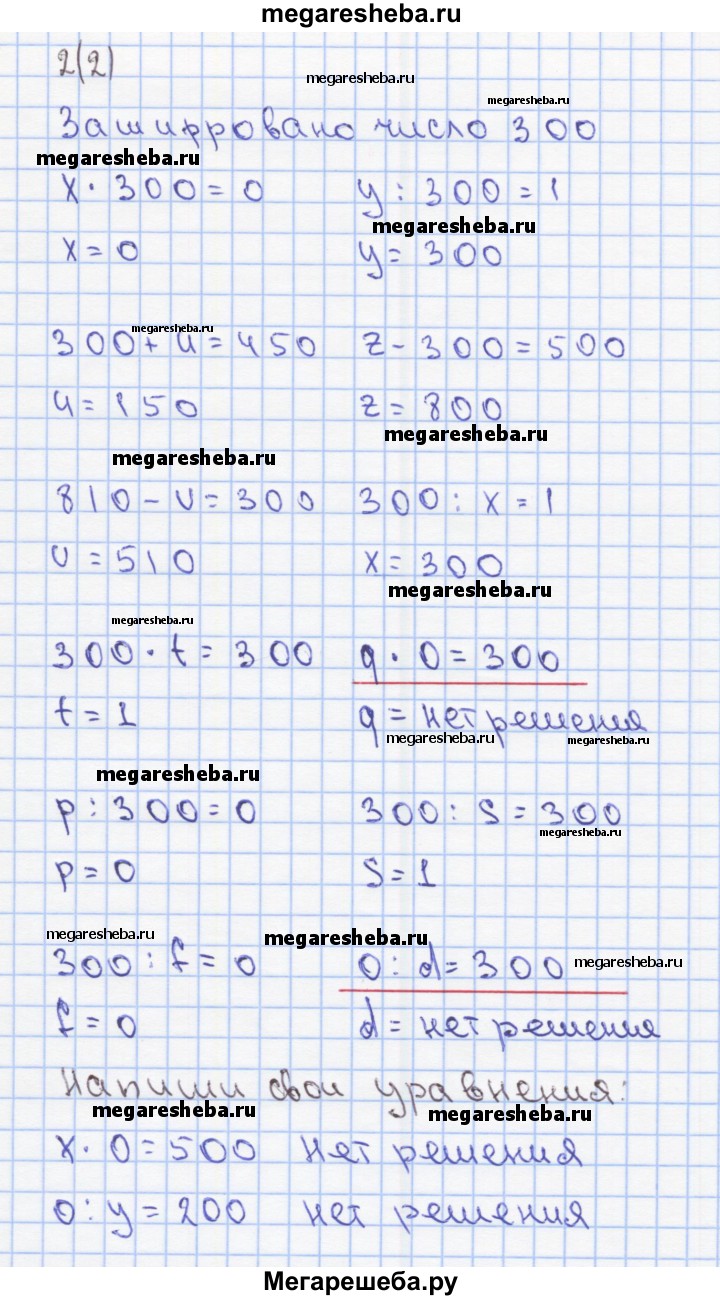 megaresheba.ru
2(2)
megaresheba.ru
megaresheba.ru
Зашифровано число 300
megaresheba.ru
x · 300 = 0 y : 300 = 1
megaresheba.ru
x = 0 y = 300
megaresheba.ru
300 + u = 450 z - 300 = 500
u = 150 z = 800
megaresheba.ru
megaresheba.ru
810 - v = 300 300 : x = 1
v = 510 x = 300
megaresheba.ru
megaresheba.ru
300 · t = 300 q · 0 = 300
t = 1 q = нет решения
megaresheba.ru
megaresheba.ru
megaresheba.ru
p : 300 = 0 300 : s = 300
megaresheba.ru
p = 0 s = 1
megaresheba.ru
megaresheba.ru
300 : f = 0 0 : d = 300 megaresheba.ru
f = 0 d = нет решения
Напиши свои уравнения:
megaresheba.ru
megaresheba.ru
x · 0 = 500 нет решения
0 : y = 200 нет решения
Мегарешеба.ру